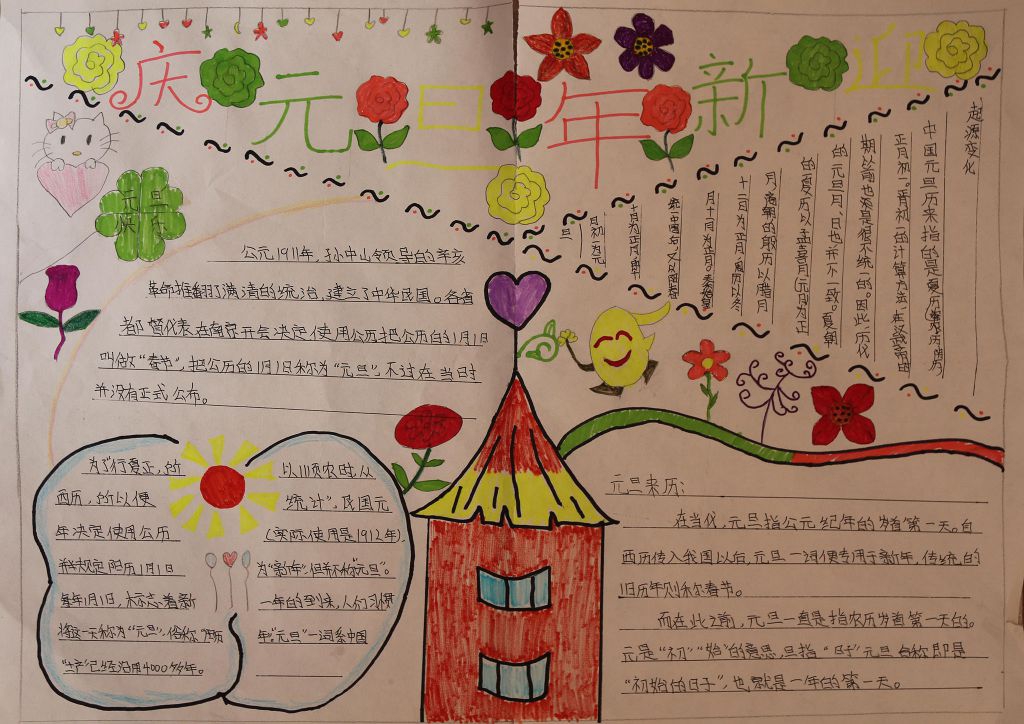 庆元旦年新迎
元旦快乐
公元1911年，孙中山领导的辛亥
革命推翻了满清的统治，建立了中华民国。各省
都督代表在南京开会决定使用公历把公历的1月1日
叫做“春节”，把公历的1月1日称为“元旦”，不过在当时
并没有正式公布。
起源变化
中国元旦历来指的是夏历
正月初一。正月初一的计算方法，在汉武帝
期以前也
是很不统一的。因此，历代
的元旦月、日也并不一致。夏朝
的夏历以孟喜月（元月）为正
月，商朝的殷历以腊月
（十二月）为正月，周历以冬
月（十一月）为正月。秦始皇
统一中国后，又以阳春
月（十月）为正月，即十
月初一为元
旦
为了“行夏正，所
西历，所以便
年决定使用公历
并规定阳历1月1日
每年1月1日，标志着新
将这一天称为“元旦”，俗称“阳历
生产”已经沿用4000多年。
以顺农时，从
统计”，民国元
（实际使用是1912年）
为“新年”，但并不称“元旦”。
一年的到来，人们习惯
年“元旦”一词系中国
元旦来历：
在当代，元旦指公元纪年的岁首第一天。自
西历传入我国以后，元旦一词便专用于新年，传统的
旧历年则称春节。
而在此之前，元旦一直是指农历岁首第一天的。
元是“初”“始”的意思，旦指“日子”元旦合称即是
“初始的日子”，也就是一年的第一天。